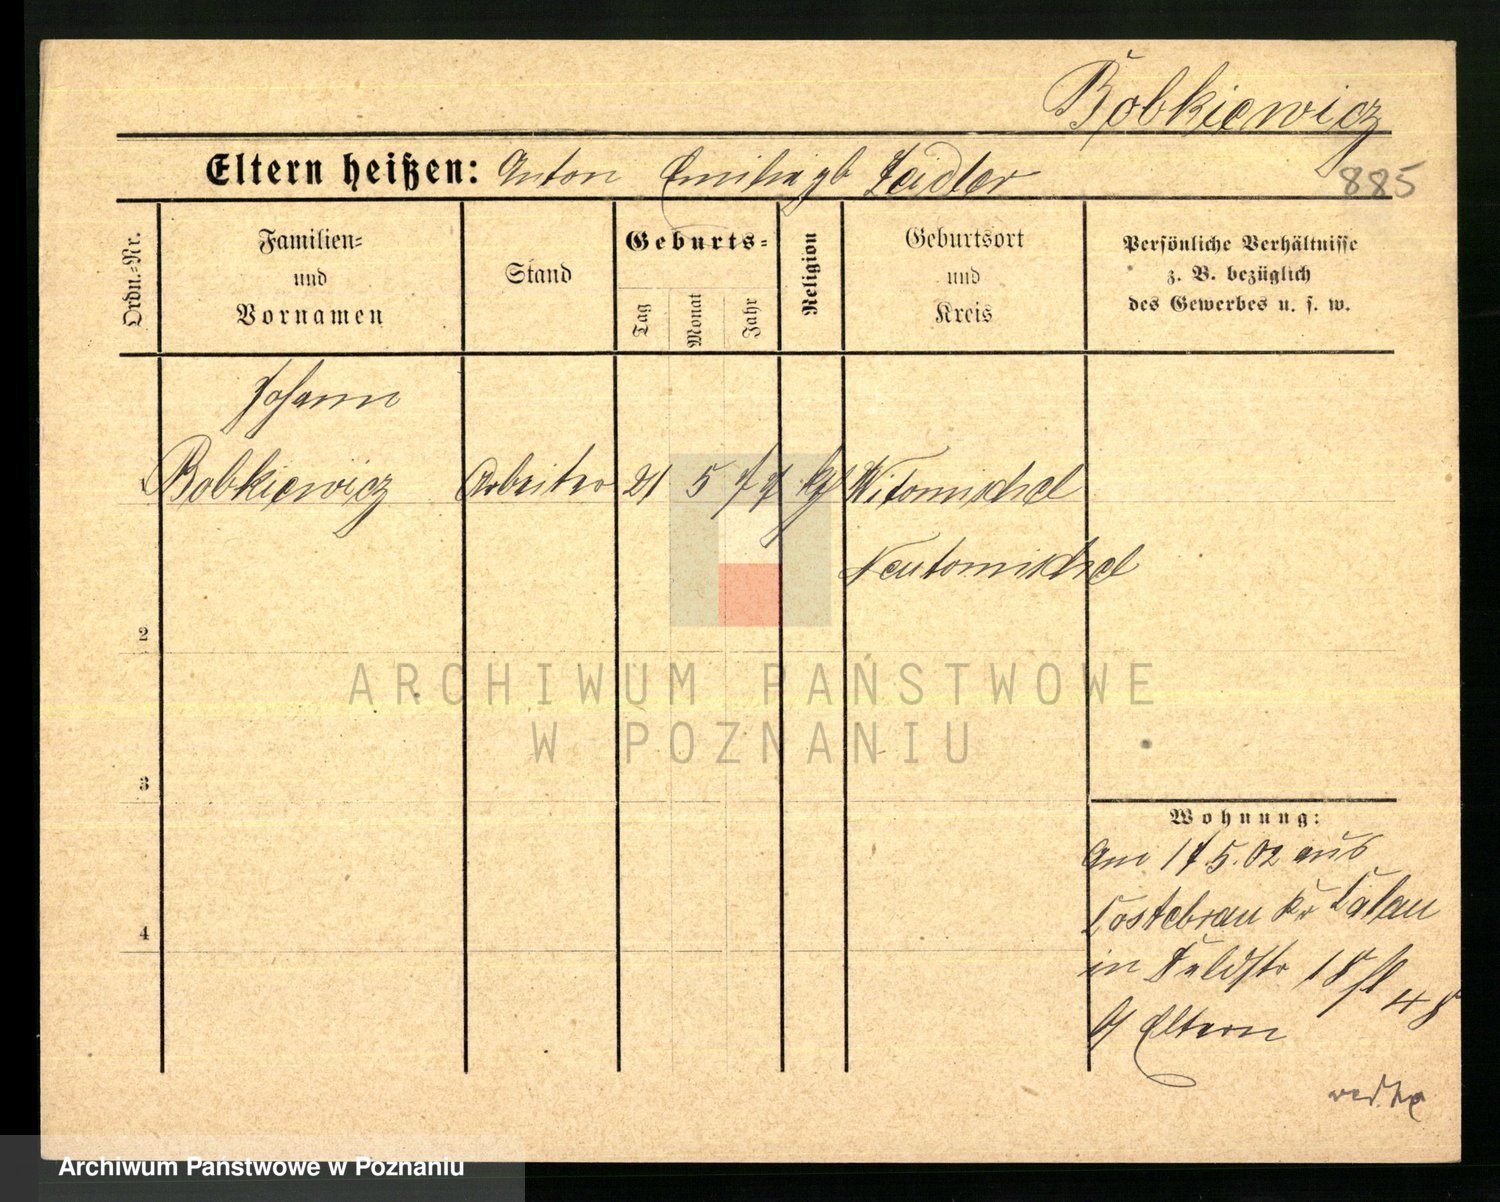 Bobkiewicz
Eltern heißen: Anton Emilie gb Zeidler
885
Ordn.=Nr.
Familien=
und
Vornamen
Stand
Geburts=
Tag
Monat
Jahr
Religion
Geburtsort
und
Kreis
Persönliche Verhältnisse
z. B. bezüglich
des Gewerbes u. s. w.
Johann
Bobkiewicz Arbeiter 21 5 77 kf Witomischel
Neutomischel
2
3
4
Wohnung:
Am 17 5. 02 aus
Costebrau Kr Calau
in Feldstr 18
b/ Eltern
ARCHIWUM PAŃSTWOWE
W POZNANIU
Archiwum Państwowe w Poznaniu